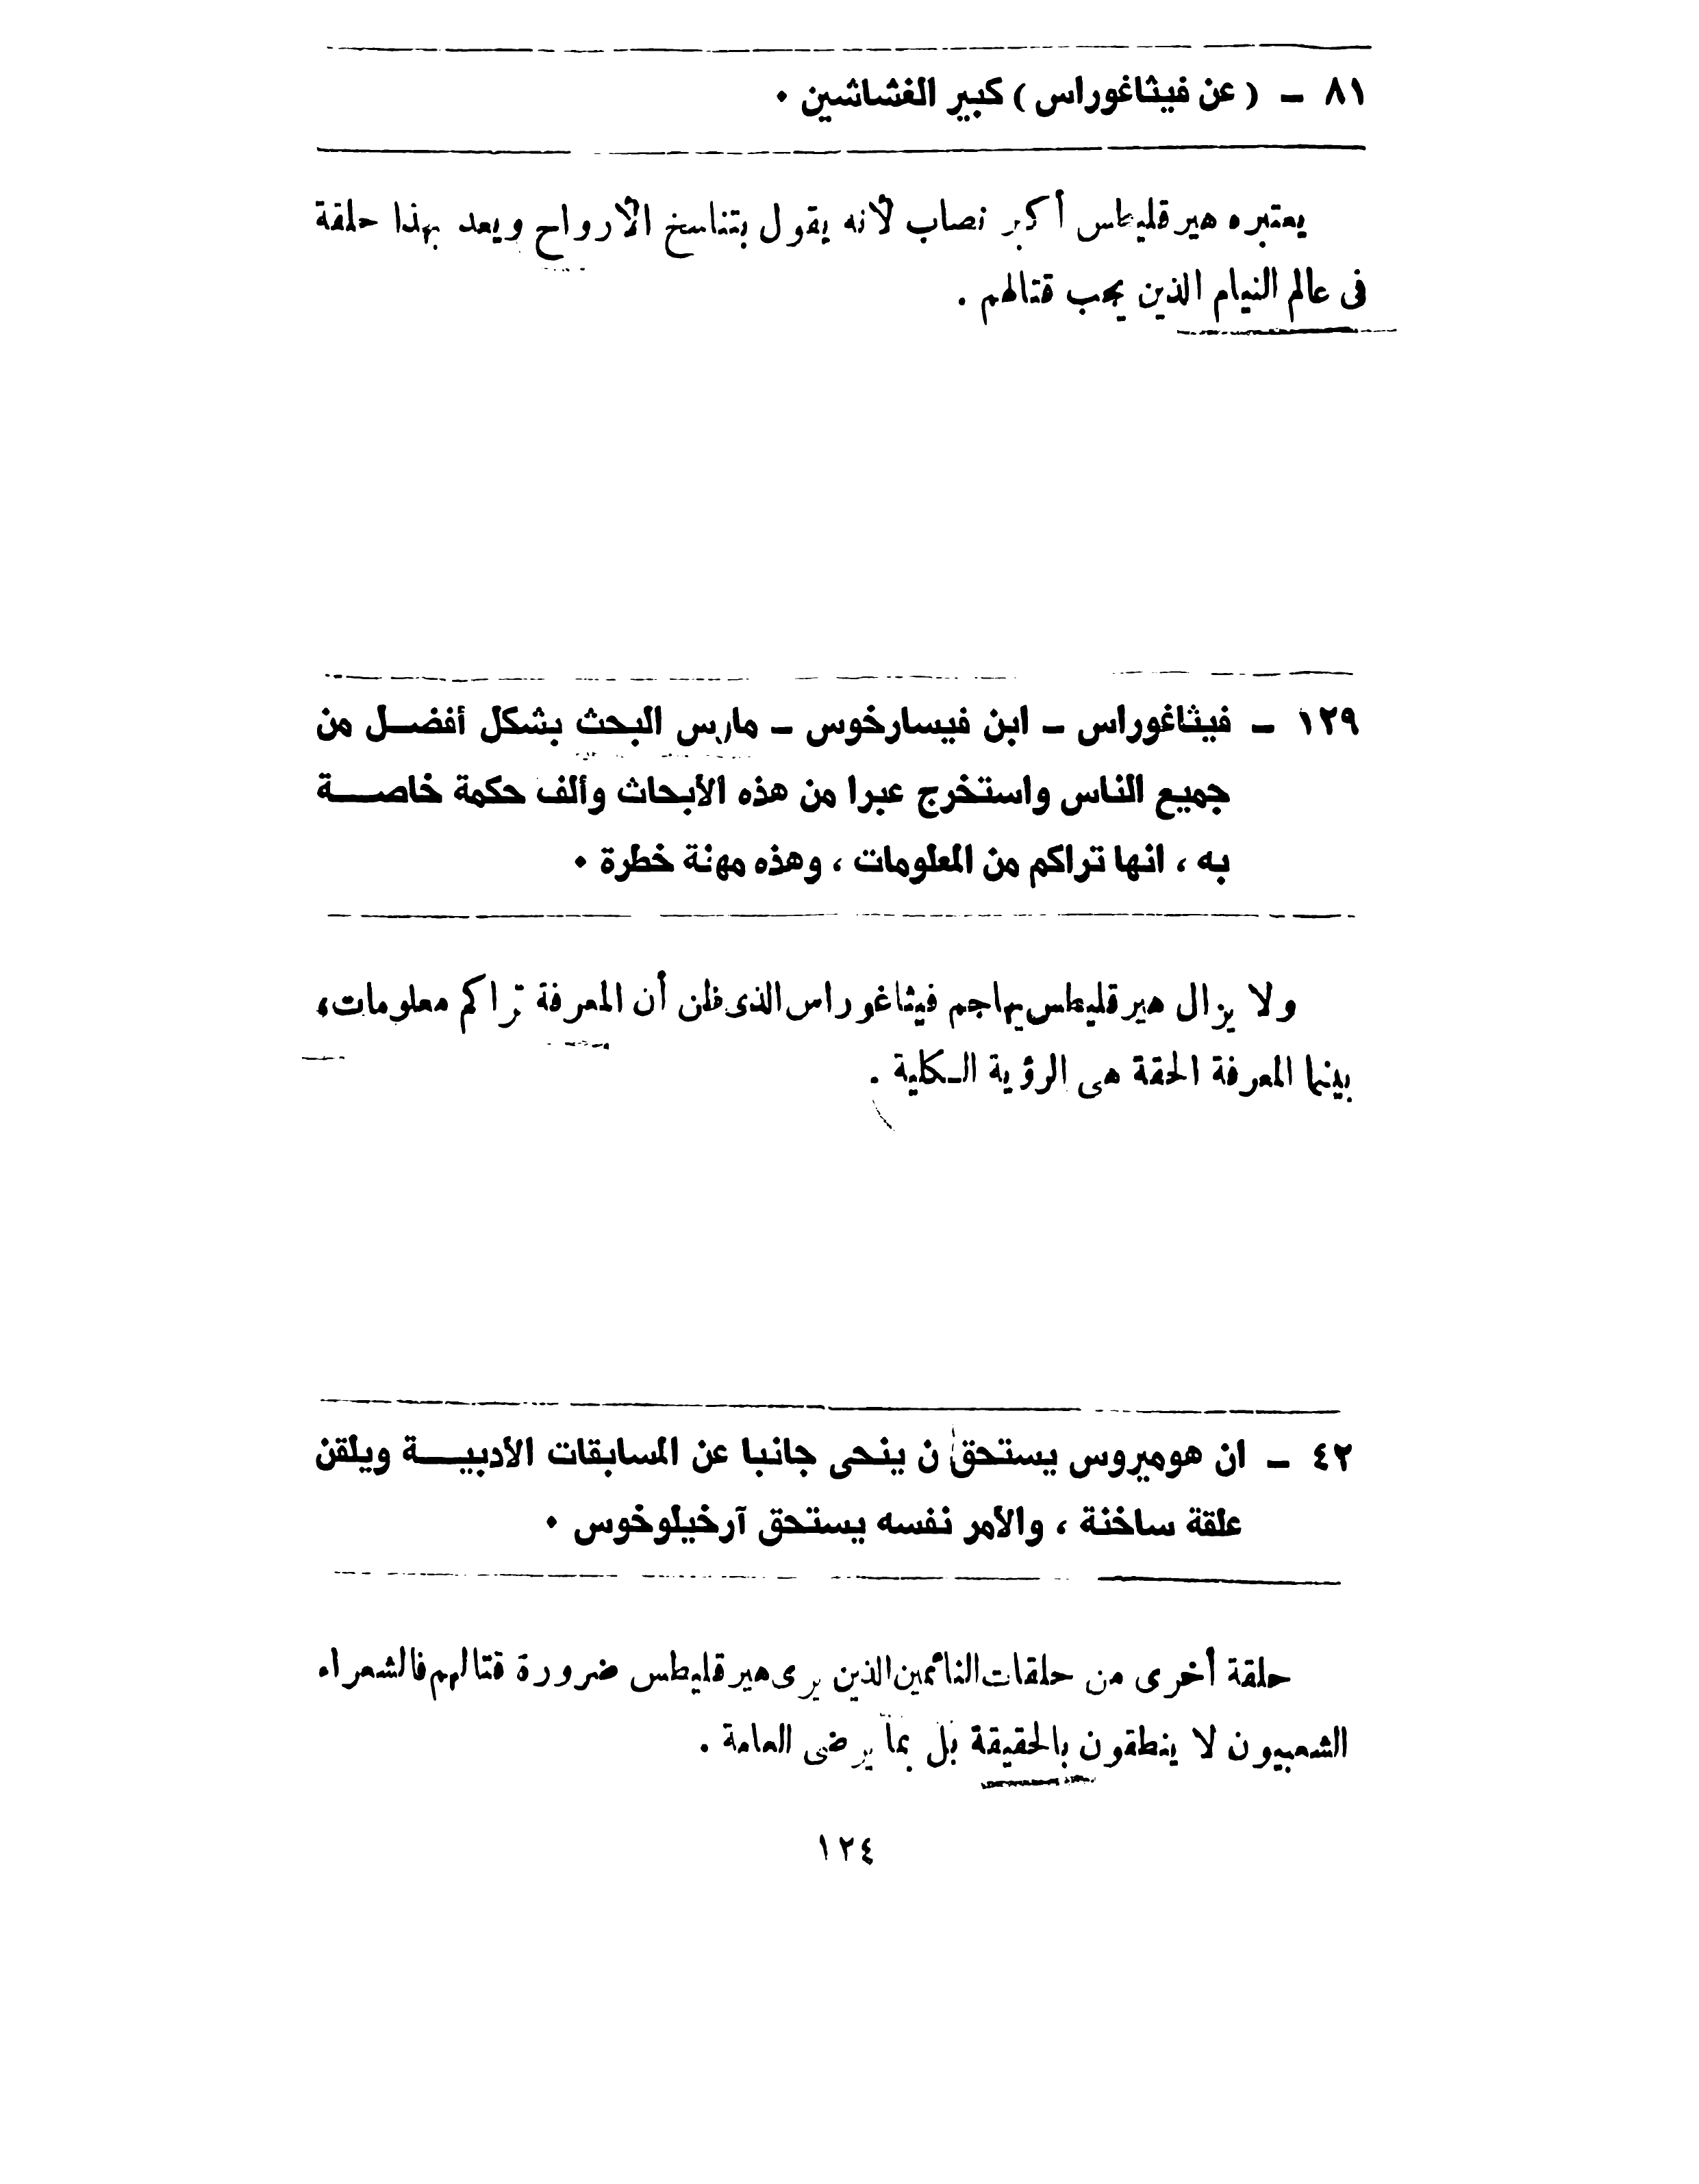 ٨١ – ( عن فيثاغوراس ) كبير الغشاشين ٠
يعتبره هيرقليطس أكبر نصاب لأنه يقول بتناسخ الأرواح ويعد بهذا حلقة
فى عالم النيام الذين يجب قتالهم .
١٢٩ – فيثاغوراس – ابن فيسارخوس – مارس البحث بشكل أفضــل من
جميع الناس واستخرج عبرا من هذه الأبحاث وألف حكمة خاصـــة
به ، انها تراكم من المعلومات ، وهذه مهنة خطرة ٠
ولا يزال هيرقليطس يهاجم فيثاغوراس الذى ظن أن المعرفة تراكم معلومات،
بينما المعرفة الحقة هى الرؤية الـكلية .
٤٢ – ان هوميروس يستحق ن ينحى جانبا عن المسابقات الأدبيـــة ويلقن
علقة ساخنة ، والأمر نفسه يستحق آرخيلوخوس ٠
حلقة أخرى من حلقات النائمين الذين يرى هيرقليطس ضرورة قتالهم فالشعراء
الشعبيون لا ينطقون بالحقيقة بل بما يرضى العامة .
١٢٤